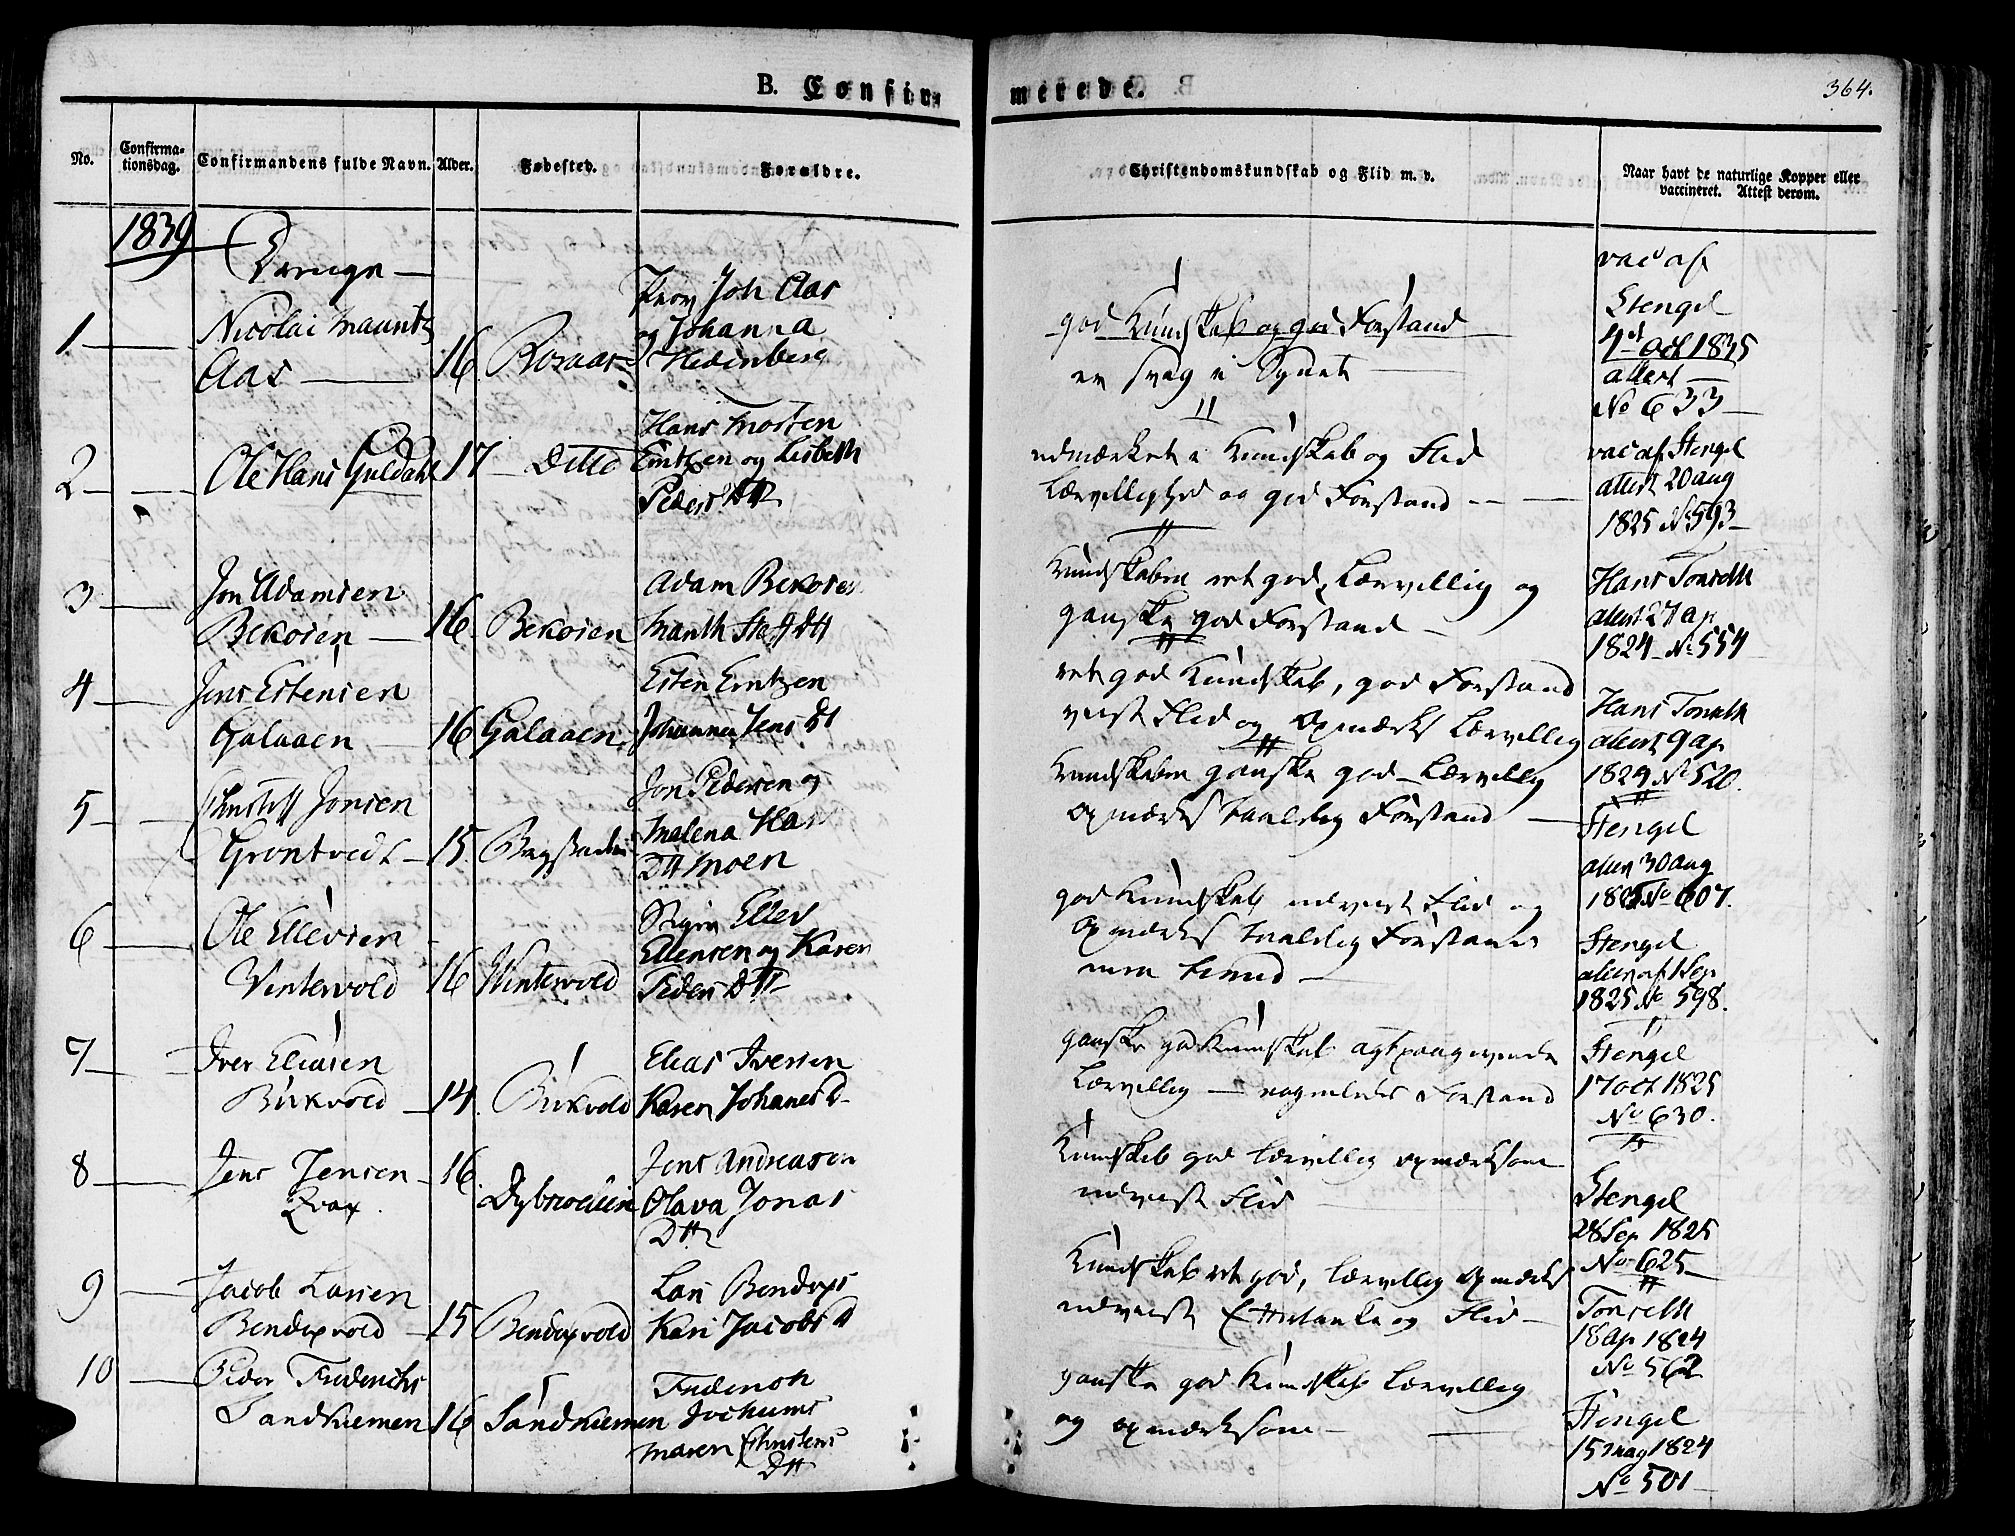 B. Confir
merede.
364.
No.
Confirma-
tionsdag.
Confirmandens fulde Navn.
Alder.
Fødested.
Forældre.
Christendomskundskab og Flid m. v.
Naar havt de naturlige Kopper eller
vaccineret. Attest derom.
1839
Drenge
1
Nicolai Mauritz
Aas
16
Joh Aas
og Johanna
Hedenberg
god Kundskab og god Forstand
er svag i Synet
vac af
Stengel
4d oct 1835
attest
No 633
2
Ole Hans Guldahl
17
Ditto
Hans Morten
Emtzen og Lisbeth
Peders Dtt
udmærket i Kundskab og Flid
Lærvillighed og god Forstand
vac af Stengel
attest 20 aug
1825 No 593
3
Jon Adamsen
Bekosen
16
Bekosen
Adam Bekosen
Marith Dtt
Kundskaben ret god, Lærvillig og
ganske god Forstand
Hans Tonseth
attest 27 ap
1824 No 554
4
Jens Estensen
Galaaen
16
Galaaen
Esten Emtzen
Johanna Jens Dt
ret god Kundskab, god Forstand
Flid og Opmærks Lærvillig
Hans Tonseth
attest 9 ap
1824 No 520.
5
Christoff Jonsen
Grontvedt
15
Jon Pedersen og
Malena
Dtt Moen
Kundskaben ganske god Lærvillig
Opmærks taalelig Forstand
Stengel
attest 30 aug
1825 No 607.
6
Ole Ellevsen
Vintervold
16
Wintervold
Ellev
Ellevsen og Karen
Peders Dtt
god Kundskab udviist Flid og
Opmærks taalelig Forstand
Stengel
attest af 1 Sep
1825 No 598.
7
Iver Eliasen
Birkvold
14
Birkvold
Elias Iversen
Karen Johanes D
ganske god Kundskab agtpaagivende
Lærvillig nogenledes Forstand
Stengel
17 oct 1825
No 630.
8
Jens Jensen
16
Jens Andreasen
Olava Jonas
Dtt
Kundskab god Lærvillig opmærksom
udviist Flid
Stengel
28 Sep 1825
No 625
9
Jacob Larsen
Bendixvold
15
Bendixvold
Lars Bendixs
Kari Jacobs D
Kundskab ret god, Lærvillig Opmærks
udviist Eftertanke og Flid
Tonseth
18 ap 1824
No 562
10
Peder Friderichs
Sandkiernen
16
Sandkiernen
Friderich
Jochums
Maren Christens
Dtt
ganske god Kundskab Lærvillig
og opmærksom
Stengel
15 may 1824
No 501